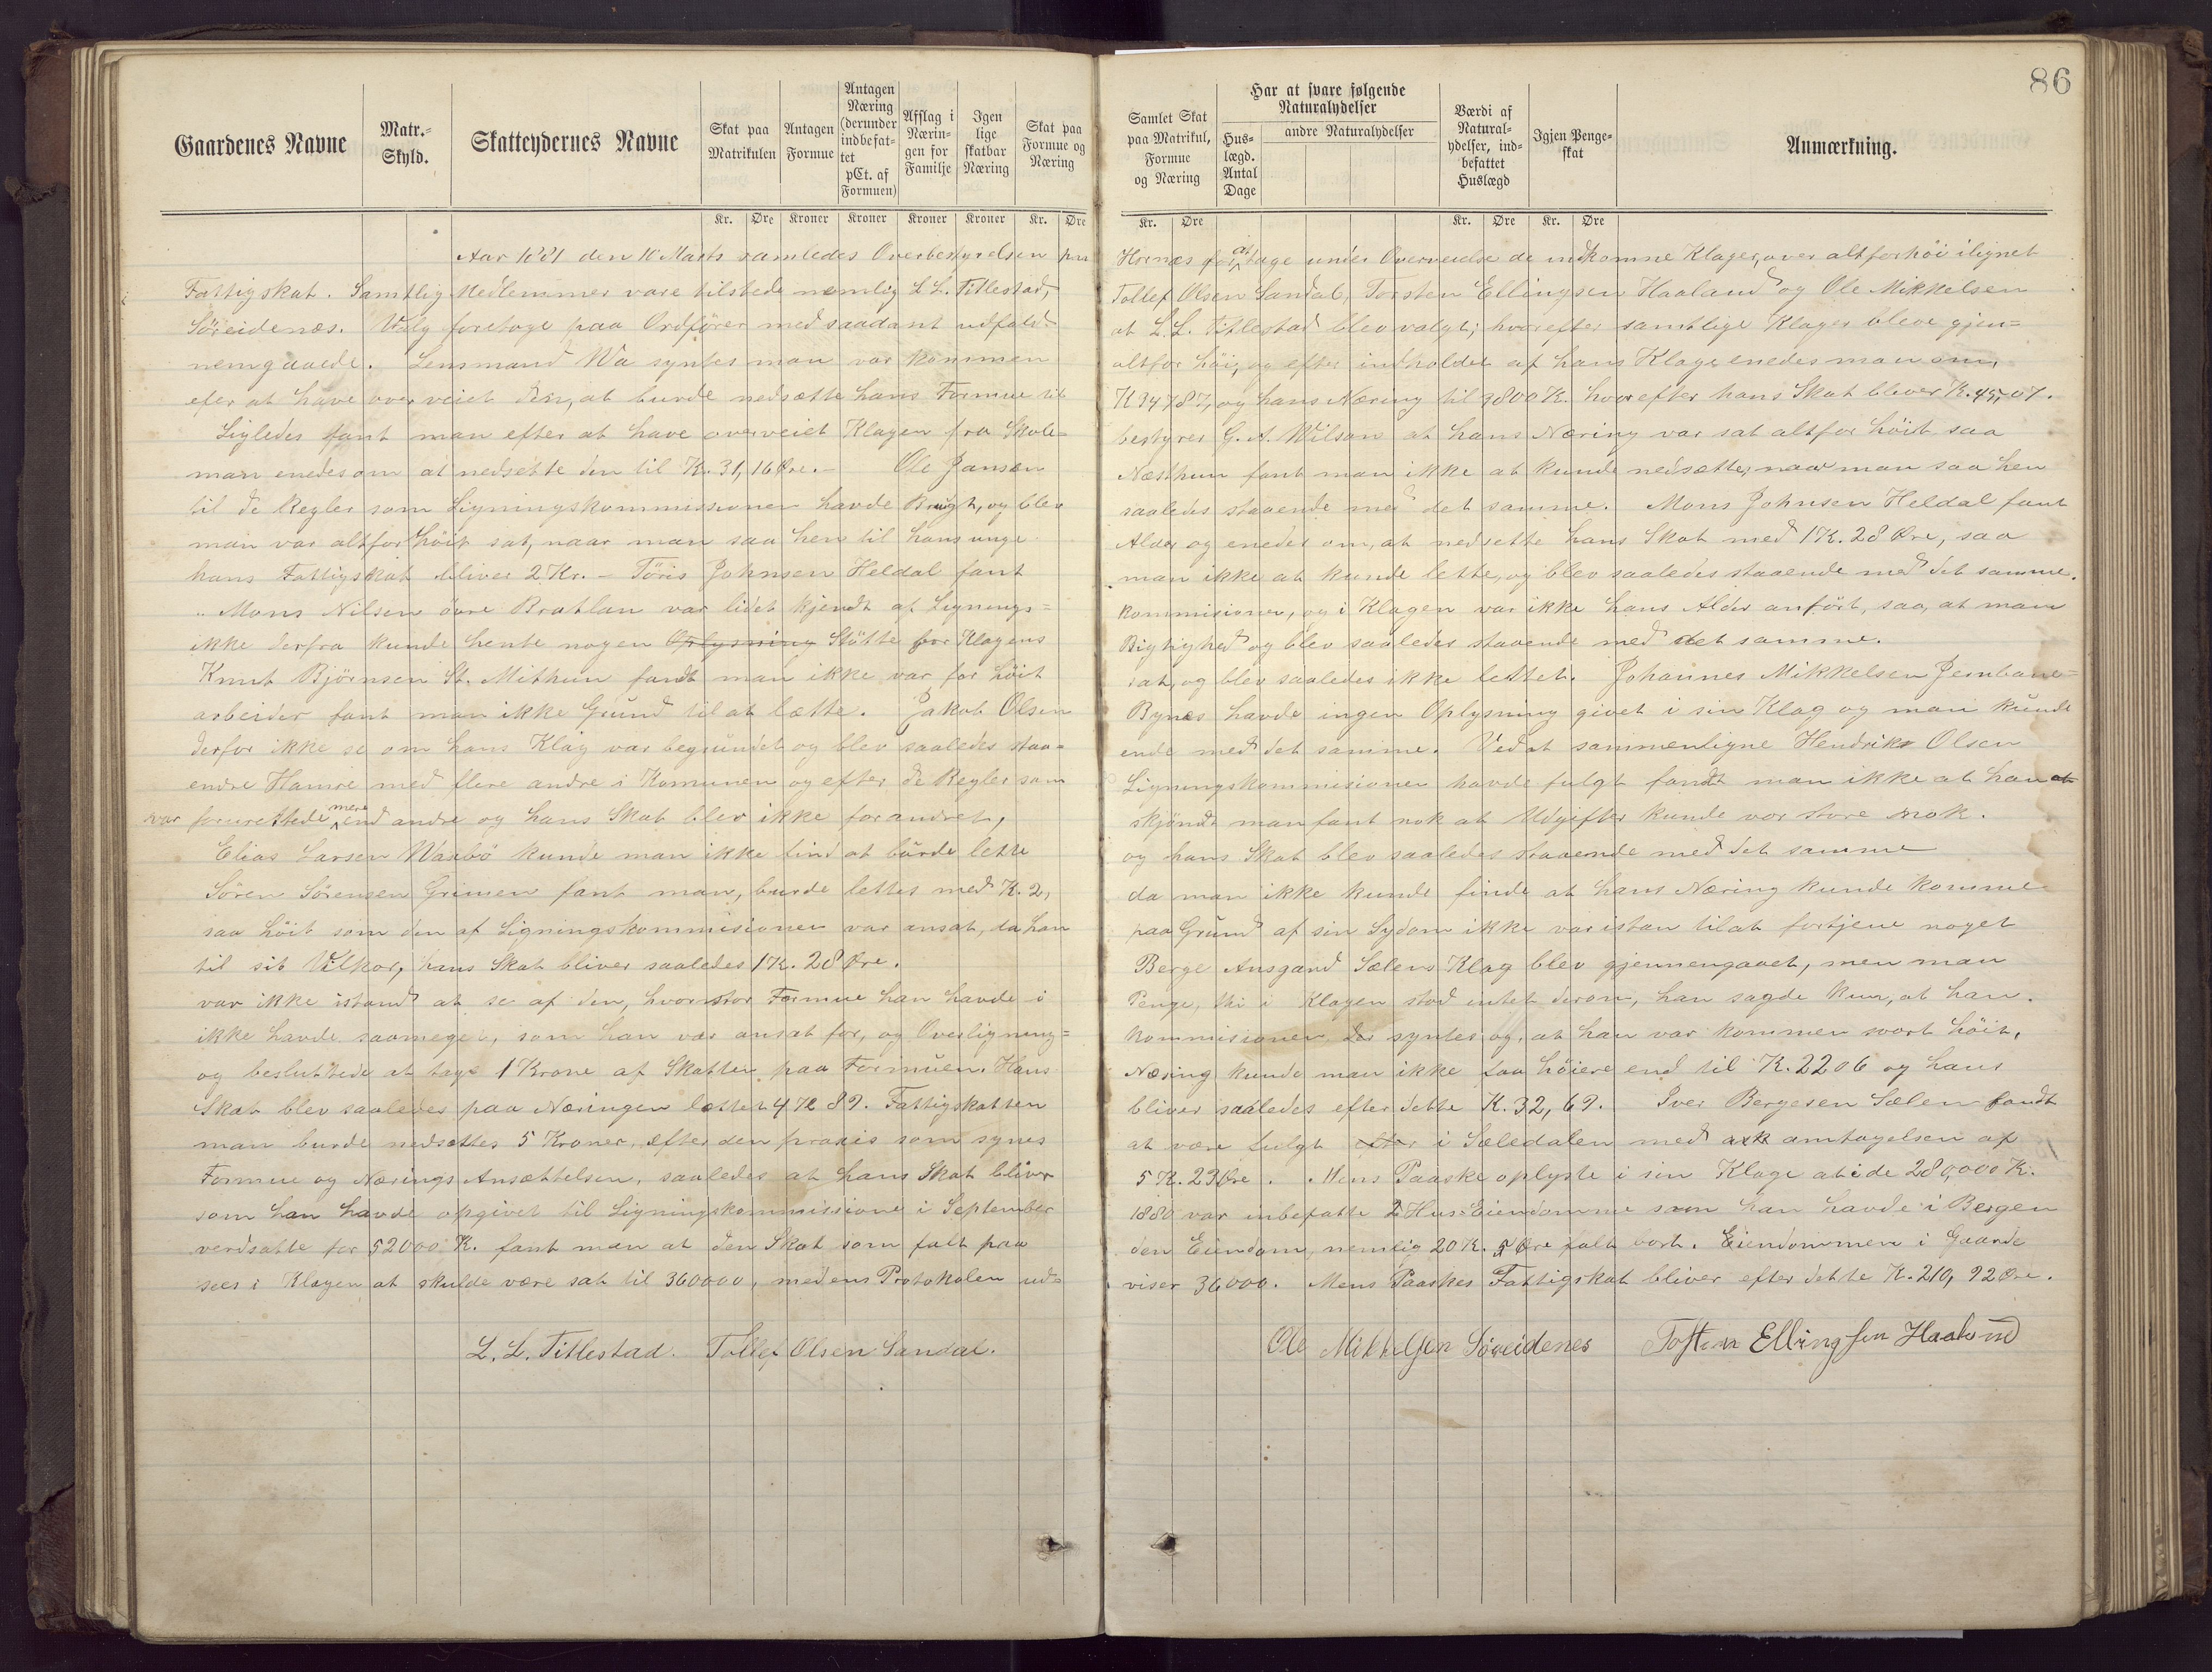 86
Gaardenes Navne
Matr.-Skyld.
Skatteydernes Navne
Skat paa Matrikulen
Antagen Formue
Antagen Næring (derunder indbefattet pCt. af Formuen)
Afslag i Næringen for Familje
Igen lige skatbar Næring
Skat paa Formue og Næring
Samlet Skat paa Matrikul, Formue og Næring
Har at svare følgende Naturalydelser
Huslægd. Antal Dage
andre Naturalydelser
Værdi af Naturalydelser, indbefattet Huslægd
Igjen Pengeskat
Anmærkning.
Kr. Øre Kroner Kroner Kroner Kroner Kr. Øre Kr. Øre Kr. Øre Kr. Øre
Aar 1881 den 10 Marts samledes Overbestyrelsen paa Hornæs for at tage under Overveielse de indkomne Klager, over altforhöi ilignet
Fattigskat. Samtlig Medlemmer vare tilstede nemlig L L. Titlestad, Tollef Olsen Sandal, Torsten Ellingsen Haaland og Ole Mikkelsen
Söreidenæs. Valg foretoge paa Ordförer med saadant udfald at L. L. Titlestad blev valgt; hvorefter samtlige Klager bleve gjen=
nemgaaede. Lensmand Wa syntes man var kommen altfor höi, og efter indholdet af hans Klage enedes man om,
efer at have overveiet den, at burde nedsætte hans Formue til K 34787, og hans Næring til 3800 K. hvorefter hans Skat bliver K. 45,07.
Ligledes fant man efter at have overveiet Klagen fra Skole= bestyrer G. A. Wilson at hans Næring var sat altfor höit saa
man enedes om at nedsette den til Kr. 31, 16 Øre. - Ole Jansen Næsthun fant man ikke at kunde nedsætte, naar man saa hen
til de Regler som Ligningskommissionen havde Brugt, og blev saaledes staaende med det samme. Mons Johnsen Heldal fant
man var altfor höit sat, naar man saa hen til hans unge Alder og enedes om, at nedsette hans Skat med 1 K. 28 Øre, saa
hans Fattigskat bliver 2 Kr. - Töris Johnsen Heldal fant man ikke at kunde lette, og blev saaledes staaende med det samme.
Mons Nilsen övre Bratlan var lidet kjendt af Lignings= kommisionen, og i Klagen var ikke hans Alder anfört, saa, at man
ikke derfra kunde hente nogen Oplysning Stötte for Klagens Rigtighed og blev saaledes staaende med det samme.
Knut Björnsen St. Mithun fandt man ikke var for höit sat, og blev saaledes ikke lettet. Johannes Mikkelsen Jernbane=
arbeider fant man ikke Grund til at lætte. Jakob Olsen Bynes havde ingen Oplysning givet i sin Klag og man kunde
derfor ikke se om hans Klag var begrundet og blev saaledes staa= ende med det samme. Ved at sammenligne Hendrik Olsen
endre Hamre med flere andre i Komunen og efter de Regler som Ligningskommisionen havde fulgt fandt man ikke at han
var forurettede mere end andre og hans Skat blev ikke forandret, skjöndt man fant nok at Udgifter kunde vor store nok.
Elias Larsen Waxbö kunde man ikke find at burde lette og hans Skat blev saaledes staaende med det samme
Sören Sörensen Grimen fant man, burde lettes med K. 2, da man ikke kunde finde at hans Næring kunde komme
saa höit som den af Ligningskommisionen var ansat, da han paa Grund af sin Sydom ikke var istan til at fortjene noget
til sit Vilkor, hans Skat bliver saaledes 1 K. 28 Øre. Berge Ansgand Sælens Klag blev gjennengaaet, men man
var ikke istand at se af den, hvor stor Formue han havde i Penge, thi i Klagen stod intet derom, han sagde kun, at han
ikke havde saameget, som han var ansat for, og Overlignings= kommissionen syntes og, at han var kommen svært höit,
og besluttede at tage 1 Krone af Skatten paa Formuen. Hans Næring kunde man ikke faa höiere end til K. 2206 og hans
Skat blev saaledes paa Næringen lettet 4 K 89. Fattigskatten bliver saaledes efter dette K. 32, 69. Iver Bergesen Sælen fandt
man burde nedsættes 5 Kroner, efter den praxis som synes at være fulgt i Sæledalen med antagelsen af
Formue og Nærings Ansættelsen, saaledes at hans Skat bliver 5 K. 29 Øre. Mens Paaske oplyste i sin Klage at i de 280,000 K.
som han havde opgivet til Ligningskommissione i September 1880 var inbefatte 2 Hus Eiendomme som han havde i Bergen
verdsatte for 52000 K. fant man at den Skat som falt paa den Eiendom, nemlig 20 K. 5 Øre falt bort. Eiendommen i Gaarde
sees i Klagen at skulde være sat til 360000, medens Protokolen ud= viser 36000. Mens Paaskes Fattigskat bliver efter dette K. 210, 92 Øre.
L. L. Titlestad. Tollef Olsen Sandal. Ole Mikkelsen Söreidenes Tosten Ellingsen Haaland